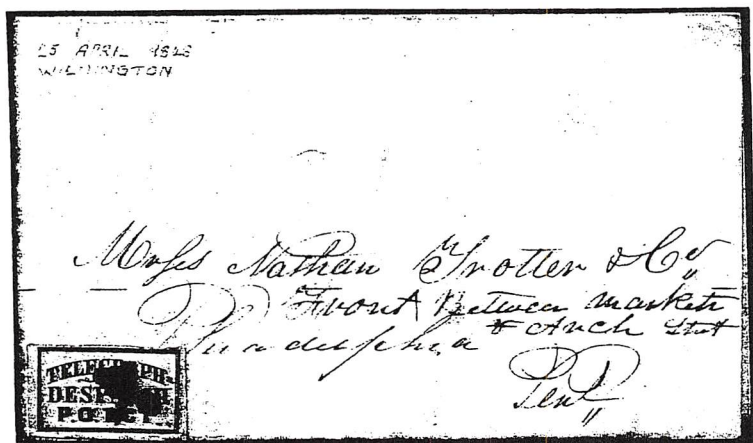 25 APRIL 1848
WILMINGTON
Messs Nathan Trotter & Co
Front Between Market
& Arch Street
Philadelphia
Penn
TELEGRAPH
DESPATCH
P.O.